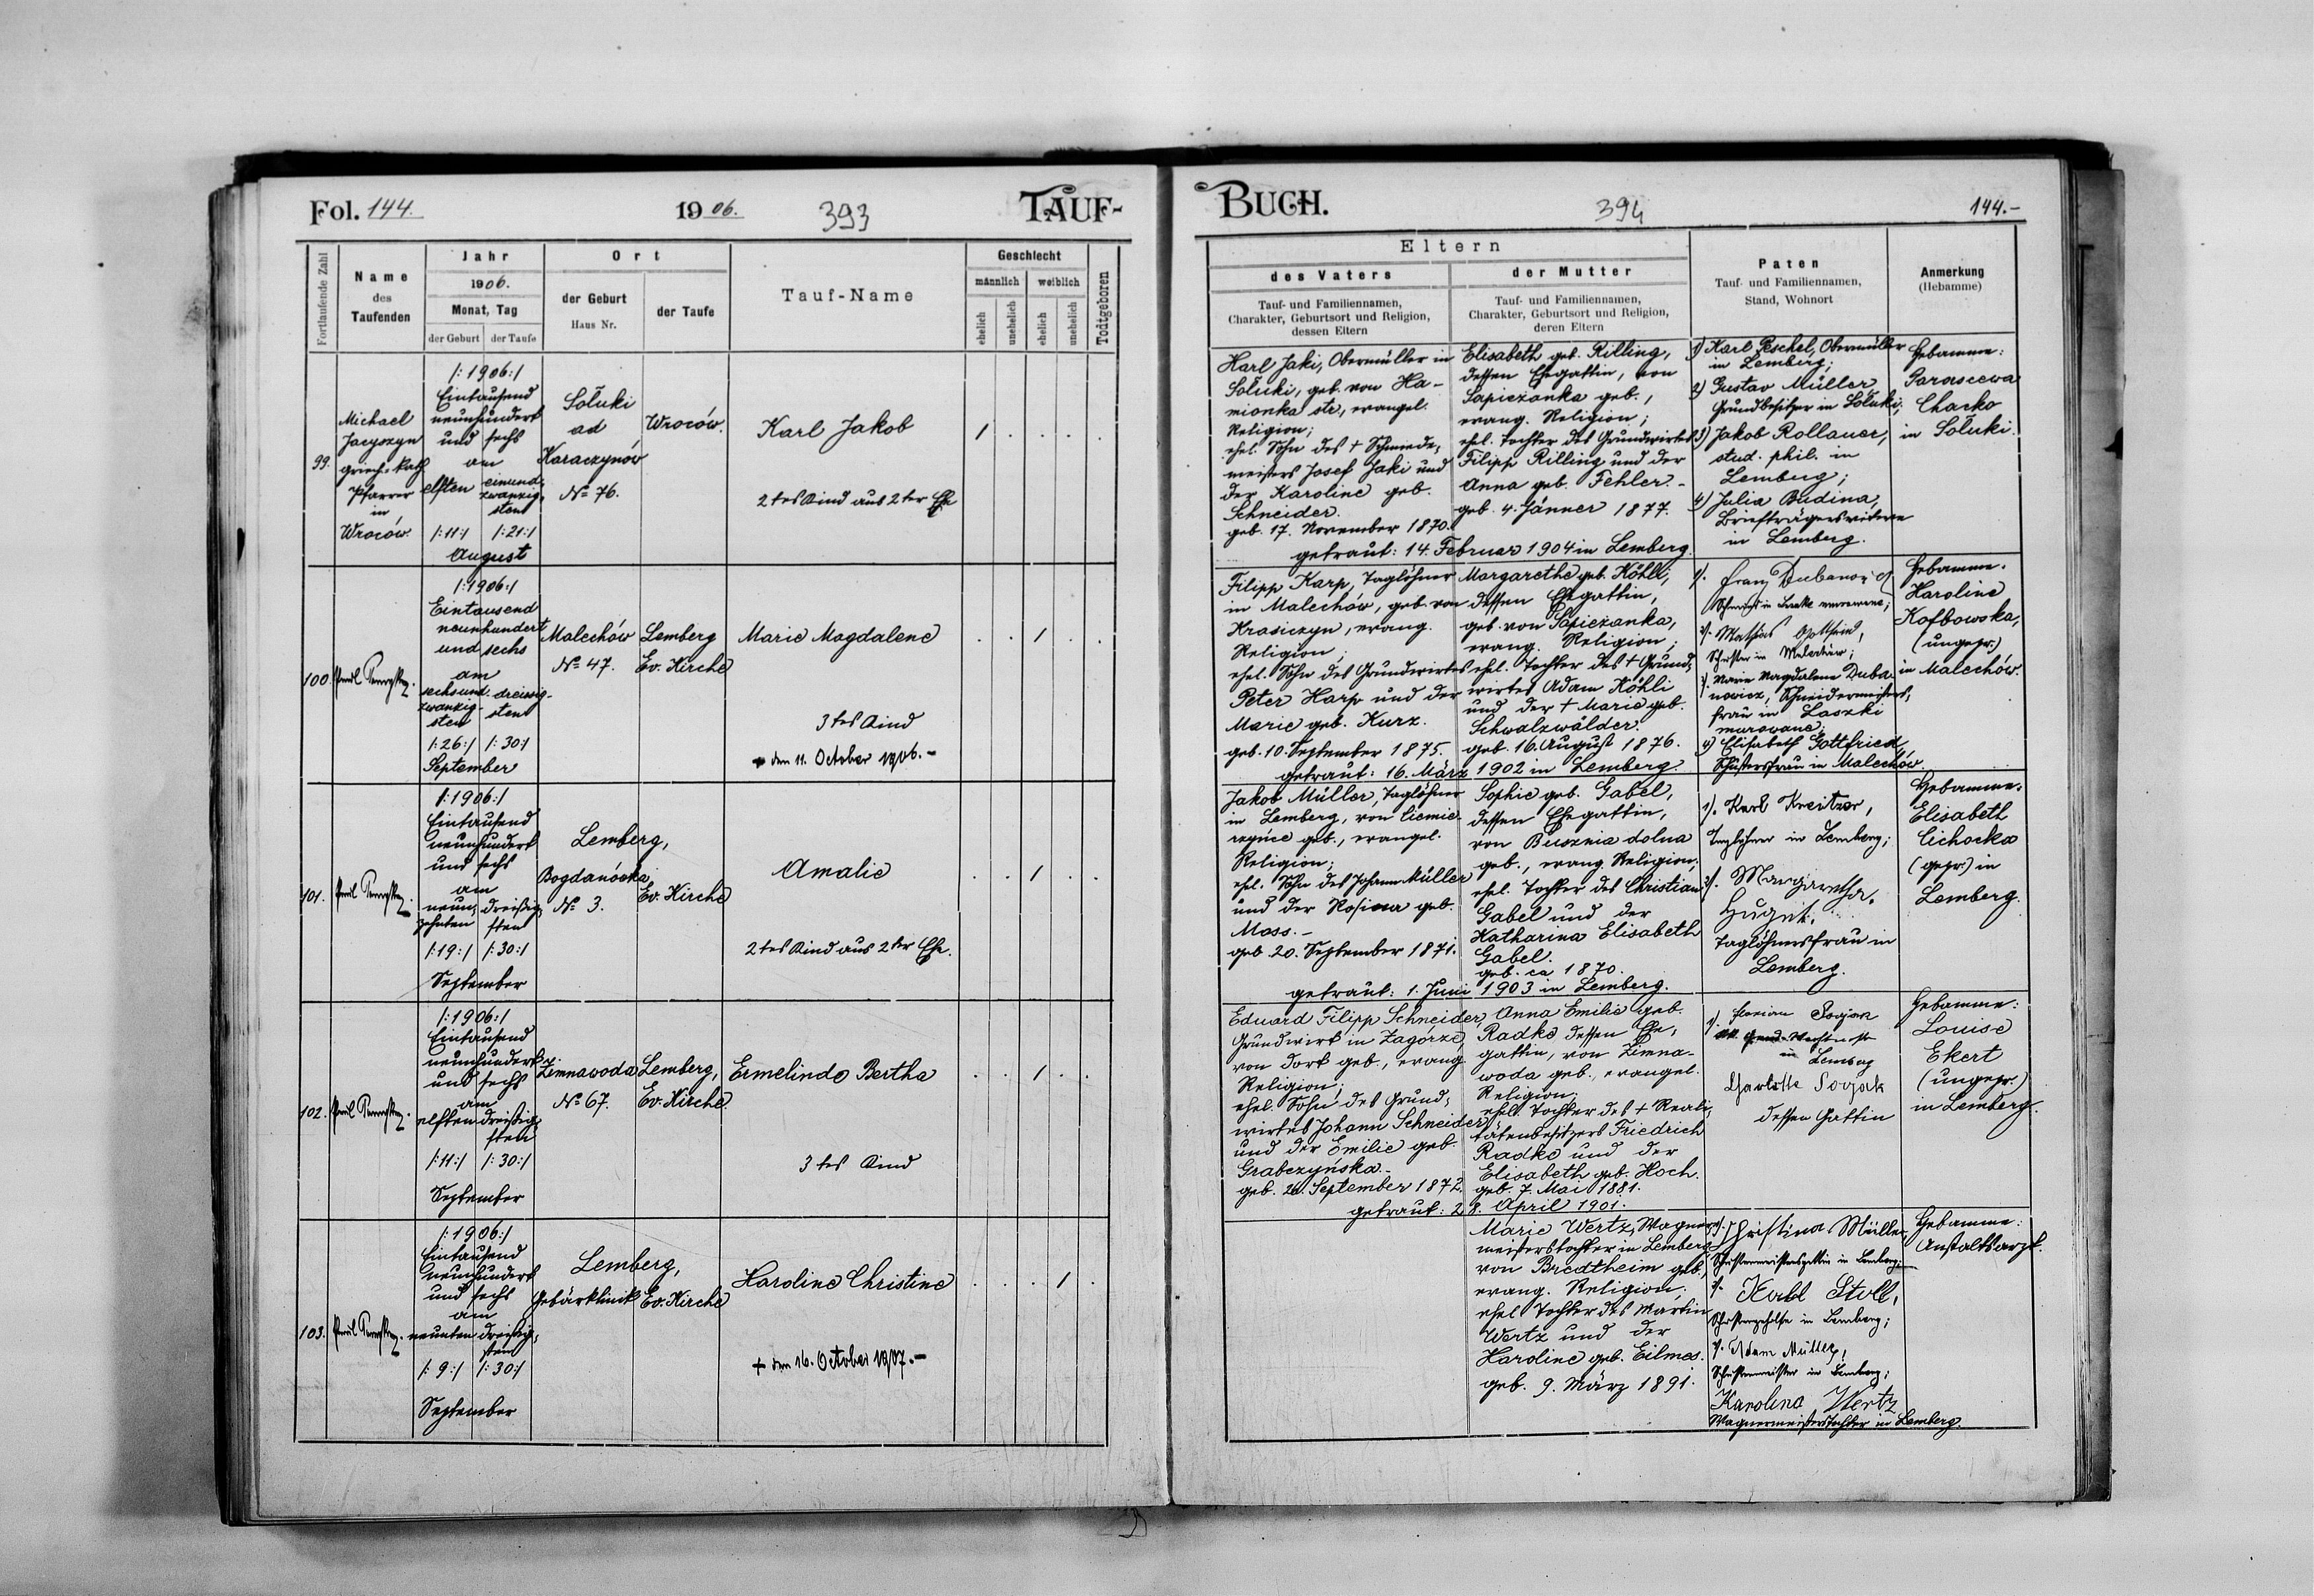 Fol. 144. 1906. 393 TAUF-
Fortlaufende Zahl
Name des Taufenden
Jahr 1906.
Monat, Tag
der Geburt der Taufe
Ort
der Geburt Haus Nr.
der Taufe
Tauf-Name
Geschlecht
männlich weiblich
ehelich unehelich ehelich unehelich
Todtgeboren
99.
Michael
Jacyszyn
griech. kath
Pfarrer
in
Wroców.
/:1906:/
Eintausend
neunhundert
und sechs
am
elften einund-
zwanzig-
sten
/:11:/ /:21:/
August
Sołuki
ad
Karaczynów
No 76.
Wroców.
Karl Jakob
2tes Kind aus 2ter Ehe
/ . . . .
100
/:1906:/
Eintausend
neunhundert
und sechs
am
sechsund- dreissig-
zwanzig- sten
sten
/:26:/ /:30:/
September
Malechów
No 47.
Lemberg
Ev. Kirche
Marie Magdalene
3tes Kind
+ den 11. October 1906.-
. . / . .
101.
/:1906:/
Eintausend
neunhundert
und sechs
am
neun- dreißig-
zehnten sten
/:19:/ /:30:/
September
Lemberg,
Bogdanówka
No 3.
Ev. Kirche
Amalie
2tes Kind aus 2ter Ehe.
. . / . .
102.
/:1906:/
Eintausend
neunhundert
und sechs
am
elften dreißig-
sten
/:11:/ /:30:/
September
Zimnawoda
No 67.
Lemberg,
Ev. Kirche.
Ermelinde Bertha
3tes Kind
. . / . .
103.
/:1906:/
Eintausend
neunhundert
und sechs
am
neunten dreißig-
sten
/:9:/ /:30:/
September
Lemberg,
Gebärklinik
Ev. Kirche
Karoline Christine
+ den 16. October 1907.-
. . . / .
BUCH. 394 144.-
Eltern
des Vaters
Tauf- und Familiennamen,
Charakter, Geburtsort und Religion,
dessen Eltern
der Mutter
Tauf- und Familiennamen,
Charakter, Geburtsort und Religion,
deren Eltern
Paten
Tauf- und Familiennamen,
Stand, Wohnort
Anmerkung
(Hebamme)
Karl Jaki, Obermüller in
Sołuki, geb. von Ka-
mionka str., evangel.
Religion;
ehel. Sohn des + Schmiede-
meisters Josef Jaki und
der Karoline geb.
Schneider.
geb. 17. November 1870.
Elisabeth geb. Rilling,
dessen Ehegattin, von
Sapieżanka geb.,
evang. Religion;
ehel. Tochter des Grundwirtes
Filipp Rilling und der
Anna geb. Fehler.-
geb. 4. Jänner 1877.
getraut: 14. Februar 1904 in Lemberg.
1) Karl Peschel, Obermüller
in Lemberg;
2) Gustav Müller,
Grundbesitzer in Sołuki;
3) Jakob Rollauer,
stud. phil. in
Lemberg;
4) Julia Budina,
Briefträgerswitwe
in Lemberg.
Hebamme:
Parascewa
Charko
in Sołuki.
Filipp Karp, Taglöhner
in Malechów, geb. von
Krasiczyn, evang.
Religion;
ehel. Sohn des Grundwirtes
Peter Karp und der
Marie geb. Kurz.
geb. 10. September 1875.
Margarethe geb. Köhli,
dessen Ehegattin,
geb. von Sapieżanka,
evang. Religion;
ehel. Tochter des + Grund-
wirtes Adam Köhli
und der + Marie geb.
Schwalzwälder.
geb. 16. August 1876.
getraut: 16. März 1902 in Lemberg.
1).
2). Mathias Gottfried,
Schuster in Malechów;
3) Marie Magdalene Duba-
nowicz, Schneidermeisters-
frau in Laszki
murowane;
4) Elisabeth Gottfried,
Schustersfrau in Malechów.
Hebamme.
Karoline
Kofbowska,
(ungepr.)
in Malechów.
Jakob Müller, Taglöhner
in Lemberg, von
geb., evangel.
Religion;
ehel. Sohn des Johann Müller
und der Rosina geb.
Moss.-
geb. 20. September 1871.
Sophie geb. Gabel,
dessen Ehegattin,
von Busznia dolna
geb., evang. Religion;
ehel. Tochter des Christian
Gabel und der
Katharina Elisabeth
Gabel.
geb. ca 1870.
getraut: 1. Juni 1903 in Lemberg.
1). Karl Kreitzer,
Taglöhner in Lemberg;
2). Margaretha
Taglöhnersfrau in
Lemberg.
Hebamme.
Elisabeth
Cichocka
(gepr.) in
Lemberg.
Eduard Filipp Schneider,
Grundwirt in Zagórze,
von dort geb., evang
Religion;
ehel. Sohn des Grund-
wirtes Johann Schneider
und der Emilie geb.
Grabczyńska.-
geb. 26. September 1872.
Anna Emilie geb.
Radke dessen Ehe-
gattin, von Zimna-
woda geb., evangel.
Religion;
ehel. Tochter des + Reali-
tätenbesitzers Friedrich
Radke und der
Elisabeth geb. Hoch.
geb. 7. Mai 1881.
getraut: 28. April 1901.
1). Florian
in Lemberg
Charlotte
dessen Gattin
Hebamme:
Louise
Ekert
(ungepr.)
in Lemberg.
Marie Wertz, Wagner-
meisterstochter in Lemberg
von Bredtheim geb.,
evang. Religion,
ehel. Tochter des Martin
Wertz und der
Karoline geb. Eilmes.
geb. 9. März 1891.
1). Christina Müller
Schustermeistersgattin in Lemberg;
2). Karl Stoll,
Schustergehilfe in Lemberg;
3). Adam Müller,
Schustermeister in Lemberg;
Karolina Wertz
Wagnermeisterstochter in Lemberg.
Hebamme:
Anstaltsarzt.